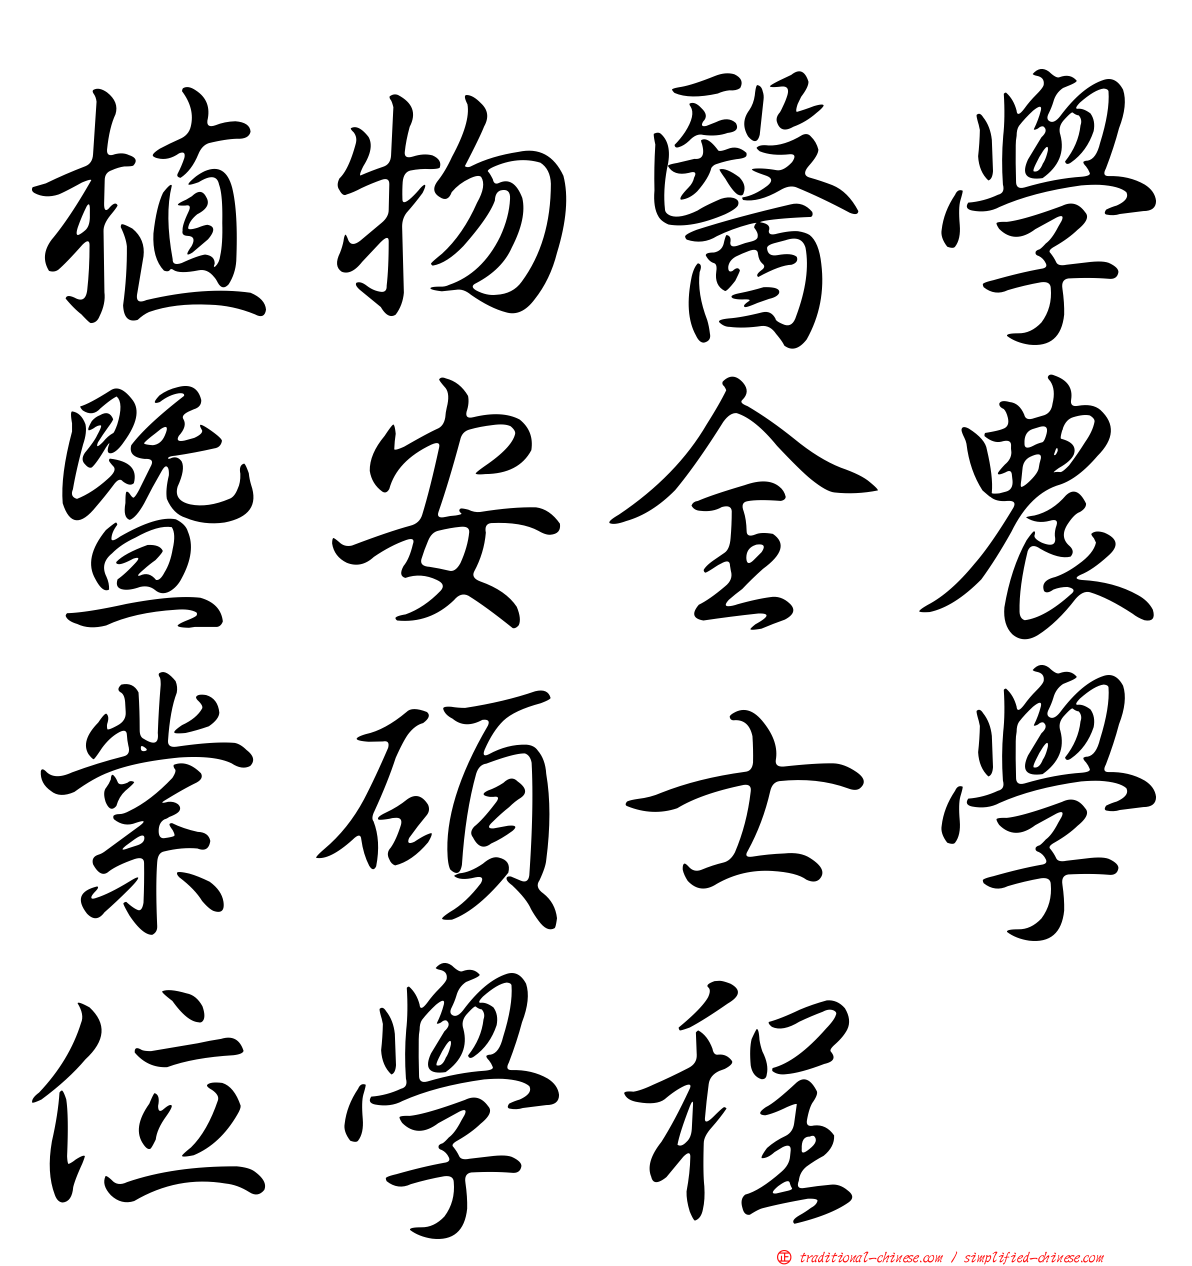 植物醫學
暨安全農
業碩士學
位學程
正 traditional-chinese.com / simplified-chinese.com